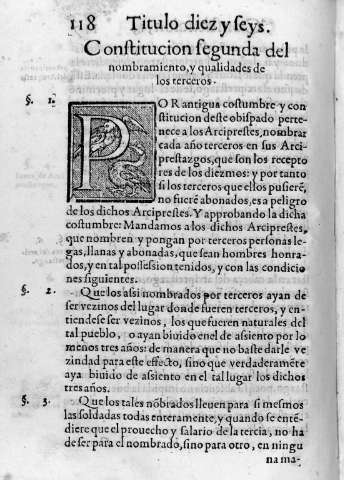 118 Titulo diez y seys.
Constitucion segunda del
nombramiento, y qualidades de
los terceros.
§. 1. POR antigua costumbre y con
stitucion deste obispado perte-
nece a los Arciprestes, nombrar
cada año terceros en sus Arci-
prestazgos, que son los recepto
res de los diezmos: y por tanto
si los terceros que ellos pusierẽ,
no fuerẽ abonados, es a peligro
de los dichos Arciprestes. Y approbando la dicha
costumbre: Mandamos a los dichos Arciprestes,
que nombren y pongan por terceros personas le-
gas, llanas y abonadas, que sean hombres honra-
dos, y en tal possession tenidos, y con las condicio
nes siguientes.
§. 2. Que los assi nombrados por terceros ayan de
ser vezinos del lugar donde fueren terceros, y en-
tiendese ser vezinos, los que fueren naturales del
tal pueblo, o ayan biuido en el de assiento por lo
menos tres años: de manera que no baste darle ve
zindad para este effecto, sino que verdaderamẽte
aya biuido de assiento en el tal lugar los dichos
tres años.
§. 3. Que los tales nõbrados lleuen para si mesmos
las soldadas todas enteramente, y quando se entẽ-
diere que el prouecho y salario de la tercia, no ha
de ser para el nombrado, sino para otro, en ningu
na ma-